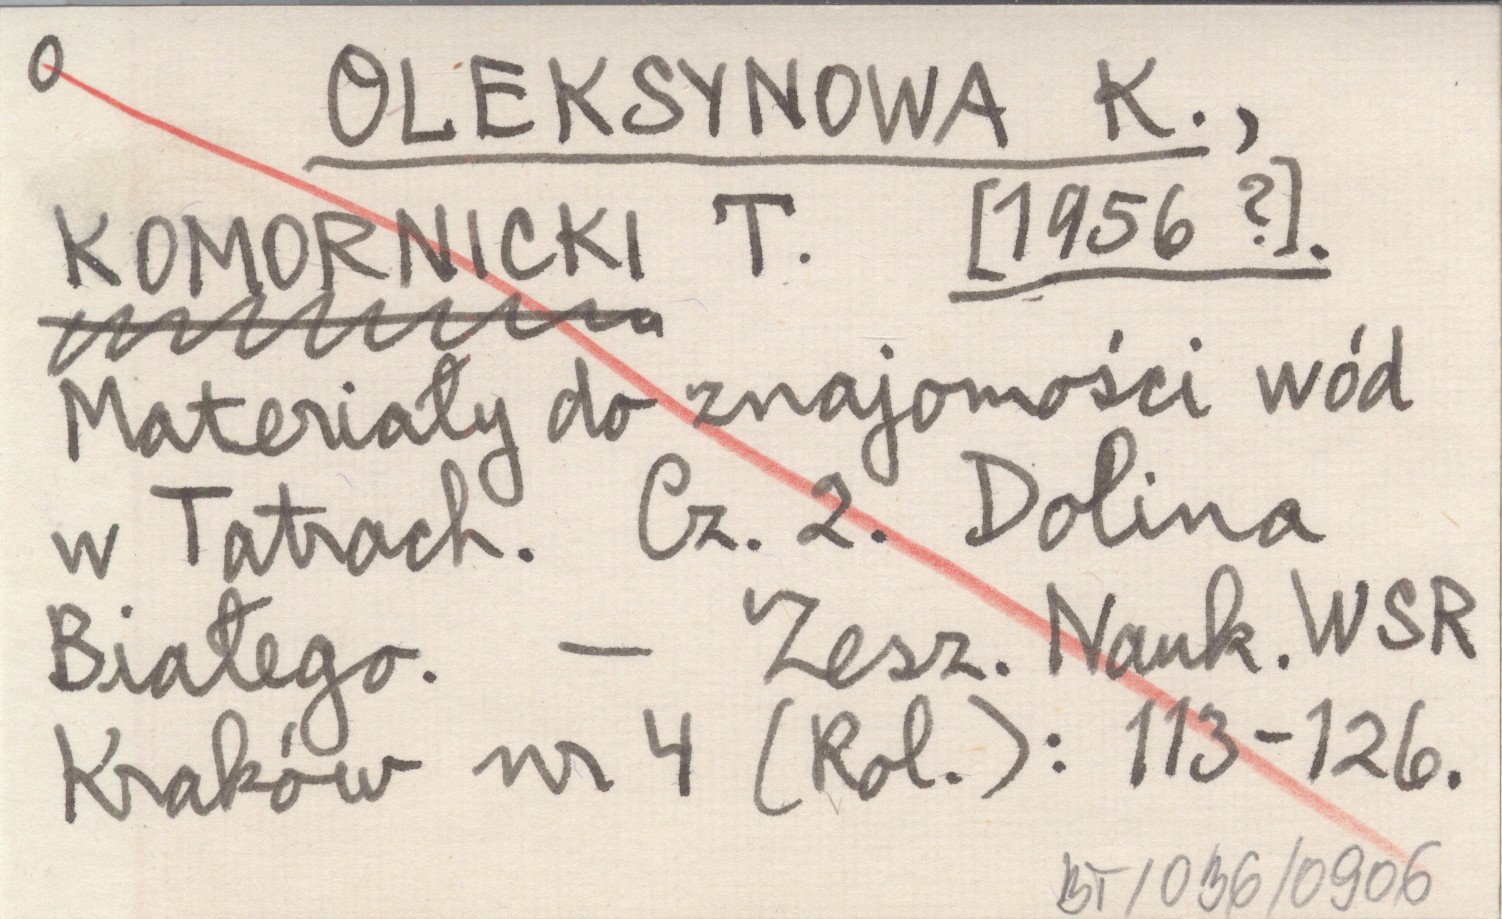 O
OLEKSYNOWA K.,
KOMORNICKI T. [1956 ?].
Materiały do znajomości wód
w Tatrach. Cz. 2. Dolina
Białego. — Zesz. Nauk. WSR
Kraków nr 4 (Rol.): 113-126.
BT/036/0906